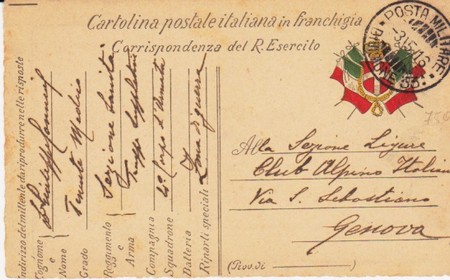 Cartolina postale italiana in franchigia
Corrispondenza del R. Esercito
POSTA MILITARE
Indirizzo del mittente da riprodurre nelle risposte
Cognome e Nome
Grado Tenente Medico
Reggimento e Arma Sezione Sanità
Compagnia
Squadrone 4° Corpo d'Armata
Batteria
Riparti speciali Zona di guerra
Alla Sezione Ligure
Club Alpino Italiano
Via S. Sebastiano
Genova
(Prov. di